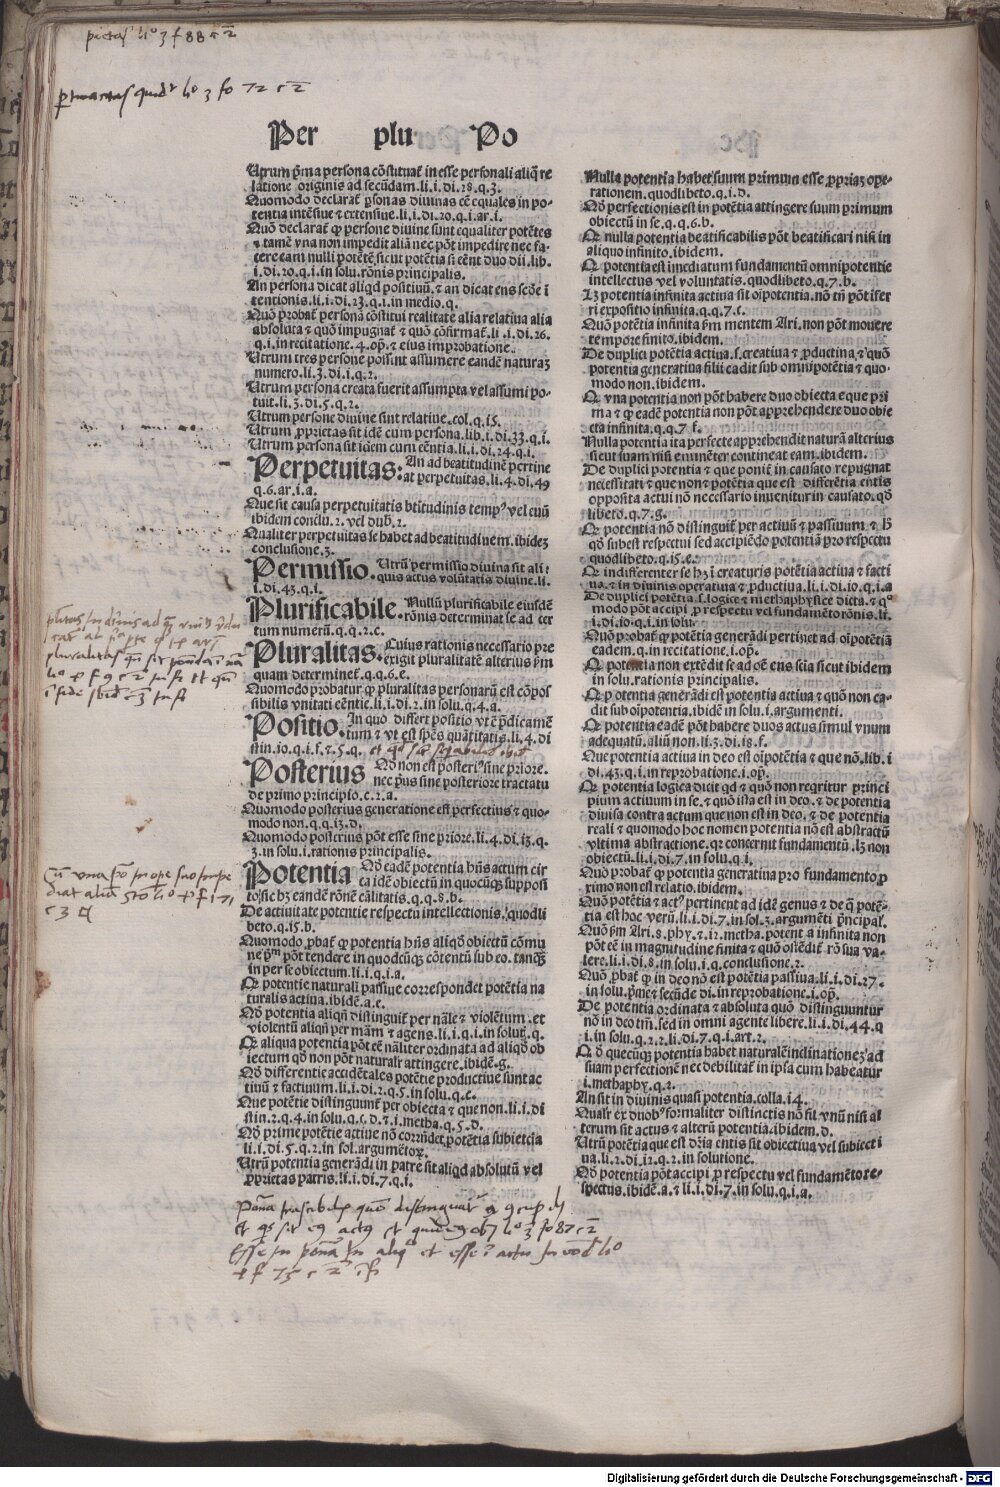 Per plu Po
Utrum p̄ma persona cōstituat̄ in esse personali aliq̄ re
latione originis ad secūdam.li.i.di.28.q.3.
Quomodo declarat̄ ꝑsonas diuinas eē equales in po-
tentia intēsiue ⁊ extensiue.li.i.di.20.q.i.ar.i.
Quō declarat̄ ꝙ persone diuine sunt equaliter potētes
⁊ tamē vna non impedit aliā nec pōt impedire nec fa-
cere eam nulli potētē sicut potētia si eēnt duo dii.lib.
i.di.20.q.i.in solu.rōnis principalis.
An persona dicat aliqd positiuū.⁊ an dicat ens scōe i
tentionis.li.i.di.23.q.i.in medio.q.
Quō probat̄ personā cōstitui realitate alia relatiua alia
absoluta ⁊ quō impugnat̄ ⁊ quō cōfirmat̄.li.i.di.26.
q.i.in recitatione.4.op̄.⁊ eius improbatione.
Utrum tres persone possint assumere eandē naturaʒ
numero.li.3.di.i.q.2.
Utrum persona creata fuerit assumpta vel assumi po-
tuit.li.3.di.5.q.2.
Utrum persone diuine sint relatiue.col.q.i5.
Utrum ꝓprietas sit idē cum persona.lib.i.di.33.q.i.
Utrum persona sit idem cum eēntia.li.i.di.24.q.i.
Perpetuitas: An ad beatitudinē pertine
at perpetuitas.li.4.di.49
q.6.ar.i.a.
Que sit causa perpetuitatis btitudinis temp⁹ vel euū
ibidem conclu.2.vel dub.2.
Qualiter perpetuitas se habet ad beatitudinem.ibideʒ
conclusione.3.
Permissio. Utrū permissio diuina sit ali
quis actus volūtatis diuine.li.
i.di.43.q.i.
Plurificabile. Nullū plurificabile eiusdē
rōnis determinat se ad cer
tum numerū.q.q.2.c.
Pluralitas. Cuius rationis necessario pre
exigit pluralitatē alterius ꝑm
quam determinet̄.q.q.6.e.
Quomodo probatur ꝙ pluralitas personarū est cōpos
sibilis vnitati eēntie.li.i.di.2.in solu.q.4.a.
Positio. In quo differt positio vt ē p̄dicamē
tum ⁊ vt est sp̄es quātitatis.li.4.di
stin.io.q.i.f.⁊.5.q.
Posterius Nō non est posteri⁹ sine priore.
nec p̄us sine posteriore tractatu
de primo principio.c.2.a.
Quomodo posterius generatione est perfectius ⁊ quo-
modo non.q.q.i3.d.
Quomodo posterius pōt esse sine priore.li.4.di.i3.q.
3.in solu.i.rationis principalis.
Potentia Nō eadē potentia hn̄s actum cir
ca idē obiectū in quocūqʒ supposi
to/sic hʒ eandē rōnē cālitatis.q.q.8.b.
De actiuitate potentie respectu intellectionis.quodli
beto.q.i5.b.
Quomodo ꝓbat̄ ꝙ potentia hn̄s aliqō obiectū cōmu
ne p̄ᵐ pōt tendere in quodcūqʒ cōtentū sub eo.tanqʒ
in per se obiectum.li.i.q.i.a.
Q potentie naturali passiue correspondet potētia na
turalis actiua.ibidē.a.e.
Nō potentia aliqn̄ distinguit̄ per nāle ⁊ violētum.et
violentū aliqn̄ per mām ⁊ agens.li.i.q.i.in solut̄.q.
Q aliqua potentia pōt eē nāliter ordinata ad aliqō ob
iectum qō non pōt naturalr̄ attingere.ibidē.g.
Nō differentie accidētales potētie productiue sunt ac
tiuū ⁊ factiuum.li.i.di.2.q.5.in solu.q.c.
Que potētie distinguunt̄ per obiecta ⁊ que non.li.i.di
stin.2.q.4.in solu.q.c.d.⁊.i.metha.q.5.d.
Nō prime potētie actiue nō corrn̄det potētia subiectia
li.i.di.5.q.2.in sol.argumētoꝝ.
Utrū potentia generādi in patre sit aliqd absolutū vel
ꝓprietas patris.li.i.di.7.q.i.
Nulla potentia habet suum primum esse ꝓpriaʒ ope-
rationem.quodlibeto.q.i.d.
Nō perfectionis est in potētia attingere suum primum
obiectū in se.q.q.6.b.
Q nulla potentia beatificabilis pōt beatificari nisi in
aliquo infinito.ibidem.
Q potentia est īmediatum fundamentū omnipotentie
intellectus vel voluntatis.quodlibeto.q.7.b.
Lʒ potentia infinita actiua sit oīpotentia.nō tn̄ pōt ifer
ri expositio infinita.q.q.7.c.
Quō potētia infinita ꝑm mentem Ari.non pōt mouere
tempore finito.ibidem.
De duplici potētia actiua.ſ.creatiua ⁊ ꝓductina.⁊ quō
potentia generatiua filii cadit sub omnipotētia ⁊ quo-
modo non.ibidem.
Q vna potentia non pōt habere duo obiecta eque pri
ma ⁊ ꝙ eadē potentia non pōt apprehendere duo obie
cta infinita.q.q.7 f.
Nulla potentia ita perfecte apprehendit naturā alterius
sicut suam nisi eminēter contineat eam.ibidem.
De duplici potentia ⁊ que ponit̄ in causato repugnat
necessitati ⁊ que non ⁊ potētia que est differētia entis
opposita actui nō necessario inuenitur in causato.qō
libeto.q.7.g.
Q potentia nō distinguit̄ per actiuū ⁊ passiuum ⁊ lʒ
qō subest respectui sed accipiēdo potentiā pro respectu
quodlibeto.q.i5.e.
Q indifferenter se hʒ i creaturis potētia actiua ⁊ facti
ua ⁊ in diuinis operatiua ⁊ ꝓductiua.li.i.di.io.q.i.a
De duplici potētia.ſ.logice ⁊ methaphysice dicta.⁊ qº
modo pōt accipi ꝓ respectu vel fundamēto rōnis.li.
i.di.io.q.i.in solu
Quō probat̄ ꝙ potētia generādi pertinet ad oīpotētiā
eadem.q.in recitatione.i.op̄.
Q potentia non extēdit se ad oē ens scia sicut ibidem
in solu.rationis principalis.
Q potentia generādi est potentia actiua ⁊ quō non ca-
dit sub oīpotentia.ibidē in solu.i.argumenti.
Q potentia eadē pōt habere duos actus simul vnum
adequatū.aliū non.li.3.di.i8.f.
Que potentia actiua in deo est oīpotētia ⁊ que nō.lib.i
di.43.q.i.in reprobatione.i.op̄.
Q potentia logica dicit qd ⁊ quō non reqritur princi
pium actiuum in se.⁊ quō ista est in deo.⁊ de potentia
diuisa contra actum que non est in deo.⁊ de potentia
reali ⁊ quomodo hoc nomen potentia nō est abstractū
vltima abstractione.qr concernit fundamentū.lʒ non
obiectū.li.i.di.7.in solu.q.i.
Quō probat̄ ꝙ potentia generatiua pro fundamento ꝓ
ximo non est relatio.ibidem.
Quō potētia ⁊ act⁹ pertinent ad idē genus ⁊ de q̄ potē-
tia est hoc verū.li.i.di.7.in sol.3.argumēti p̄ncipal̄.
Quō ꝑm Ari.8.phy.⁊.i2.metha.potent a infinita non
pōt eē in magnitudine finita ⁊ quō ostēdit̄ rō sua va-
lere.li.i.di.8.in solu.i.q.conclusione.2.
Quō ꝓbat̄ ꝙ in deo nō est potētia passiua.li.i.di.27.
in solu.p̄me ⁊ secūde di.in reprobatione.i.op̄.
De potentia ordinata ⁊ absoluta quō distinguuntur
nō in deo tm̄.sed in omni agente libere.li.i.di.44.q
i.in solu.q.2.2.li.di.7.q.i.art.2.
Q ō quecūqʒ potentia habet naturalē inclinationeʒ ad
suam perfectionē nec debilitat̄ in ipsa cum habeatur
i.methaphy.q.2.
An sit in diuinis quasi potentia.colla.i4.
Qualr̄ ex duob⁹ formaliter distinctis nō fil vnū nisi al
terum sit actus ⁊ alterū potentia.ibidem.d.
Utrū potētia que est dr̄ia entis sit obiectiua vel subiect i
ua.li.2.di.i2.q.2.in solutione.
Nō potentia pōt accipi ꝓ respectu vel fundamēto re-
spectus.ibidē.a.⁊ li.i.di.7.in solu.q.i.a.
Digitalisierung gefördert durch die Deutsche Forschungsgemeinschaft - DFG